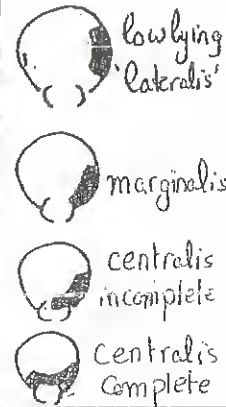 low lying
'lateralis'
marginalis
centralis
incomplete
Centralis
Complete